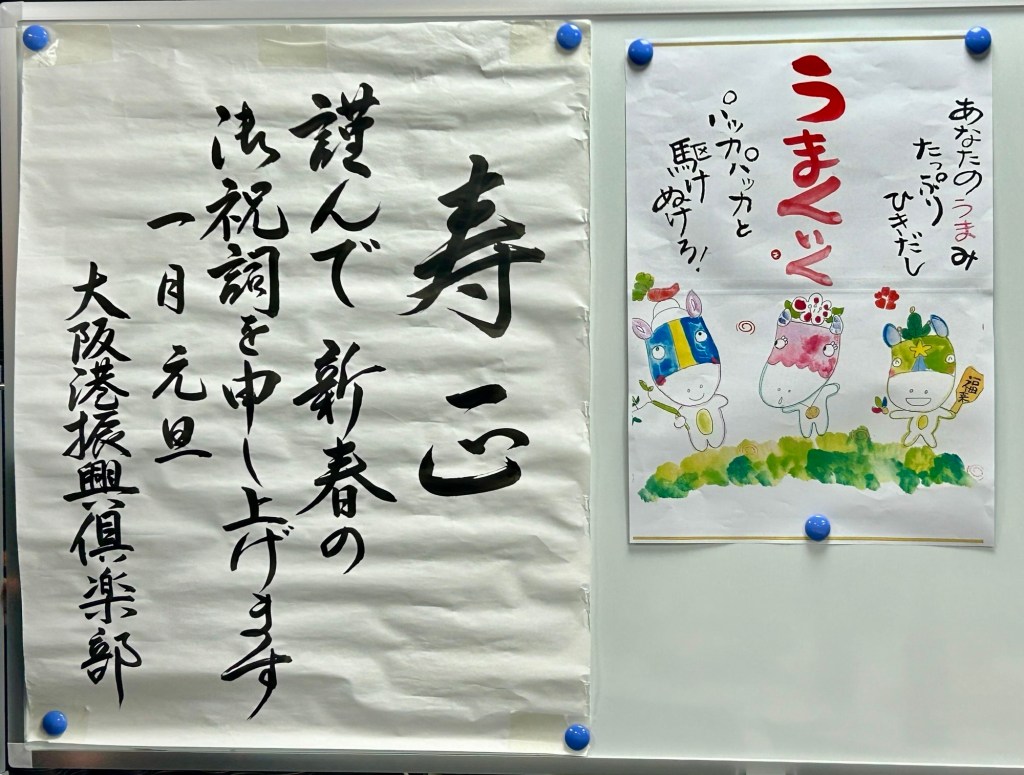 寿正
謹んで 新春の
御祝詞を申し上げます
一月 元旦
大阪港振興倶楽部
あなたのうまみ
たっぷり
ひきだし
うまくいく
パッカパッカと
駆け
ぬけろ!
福来